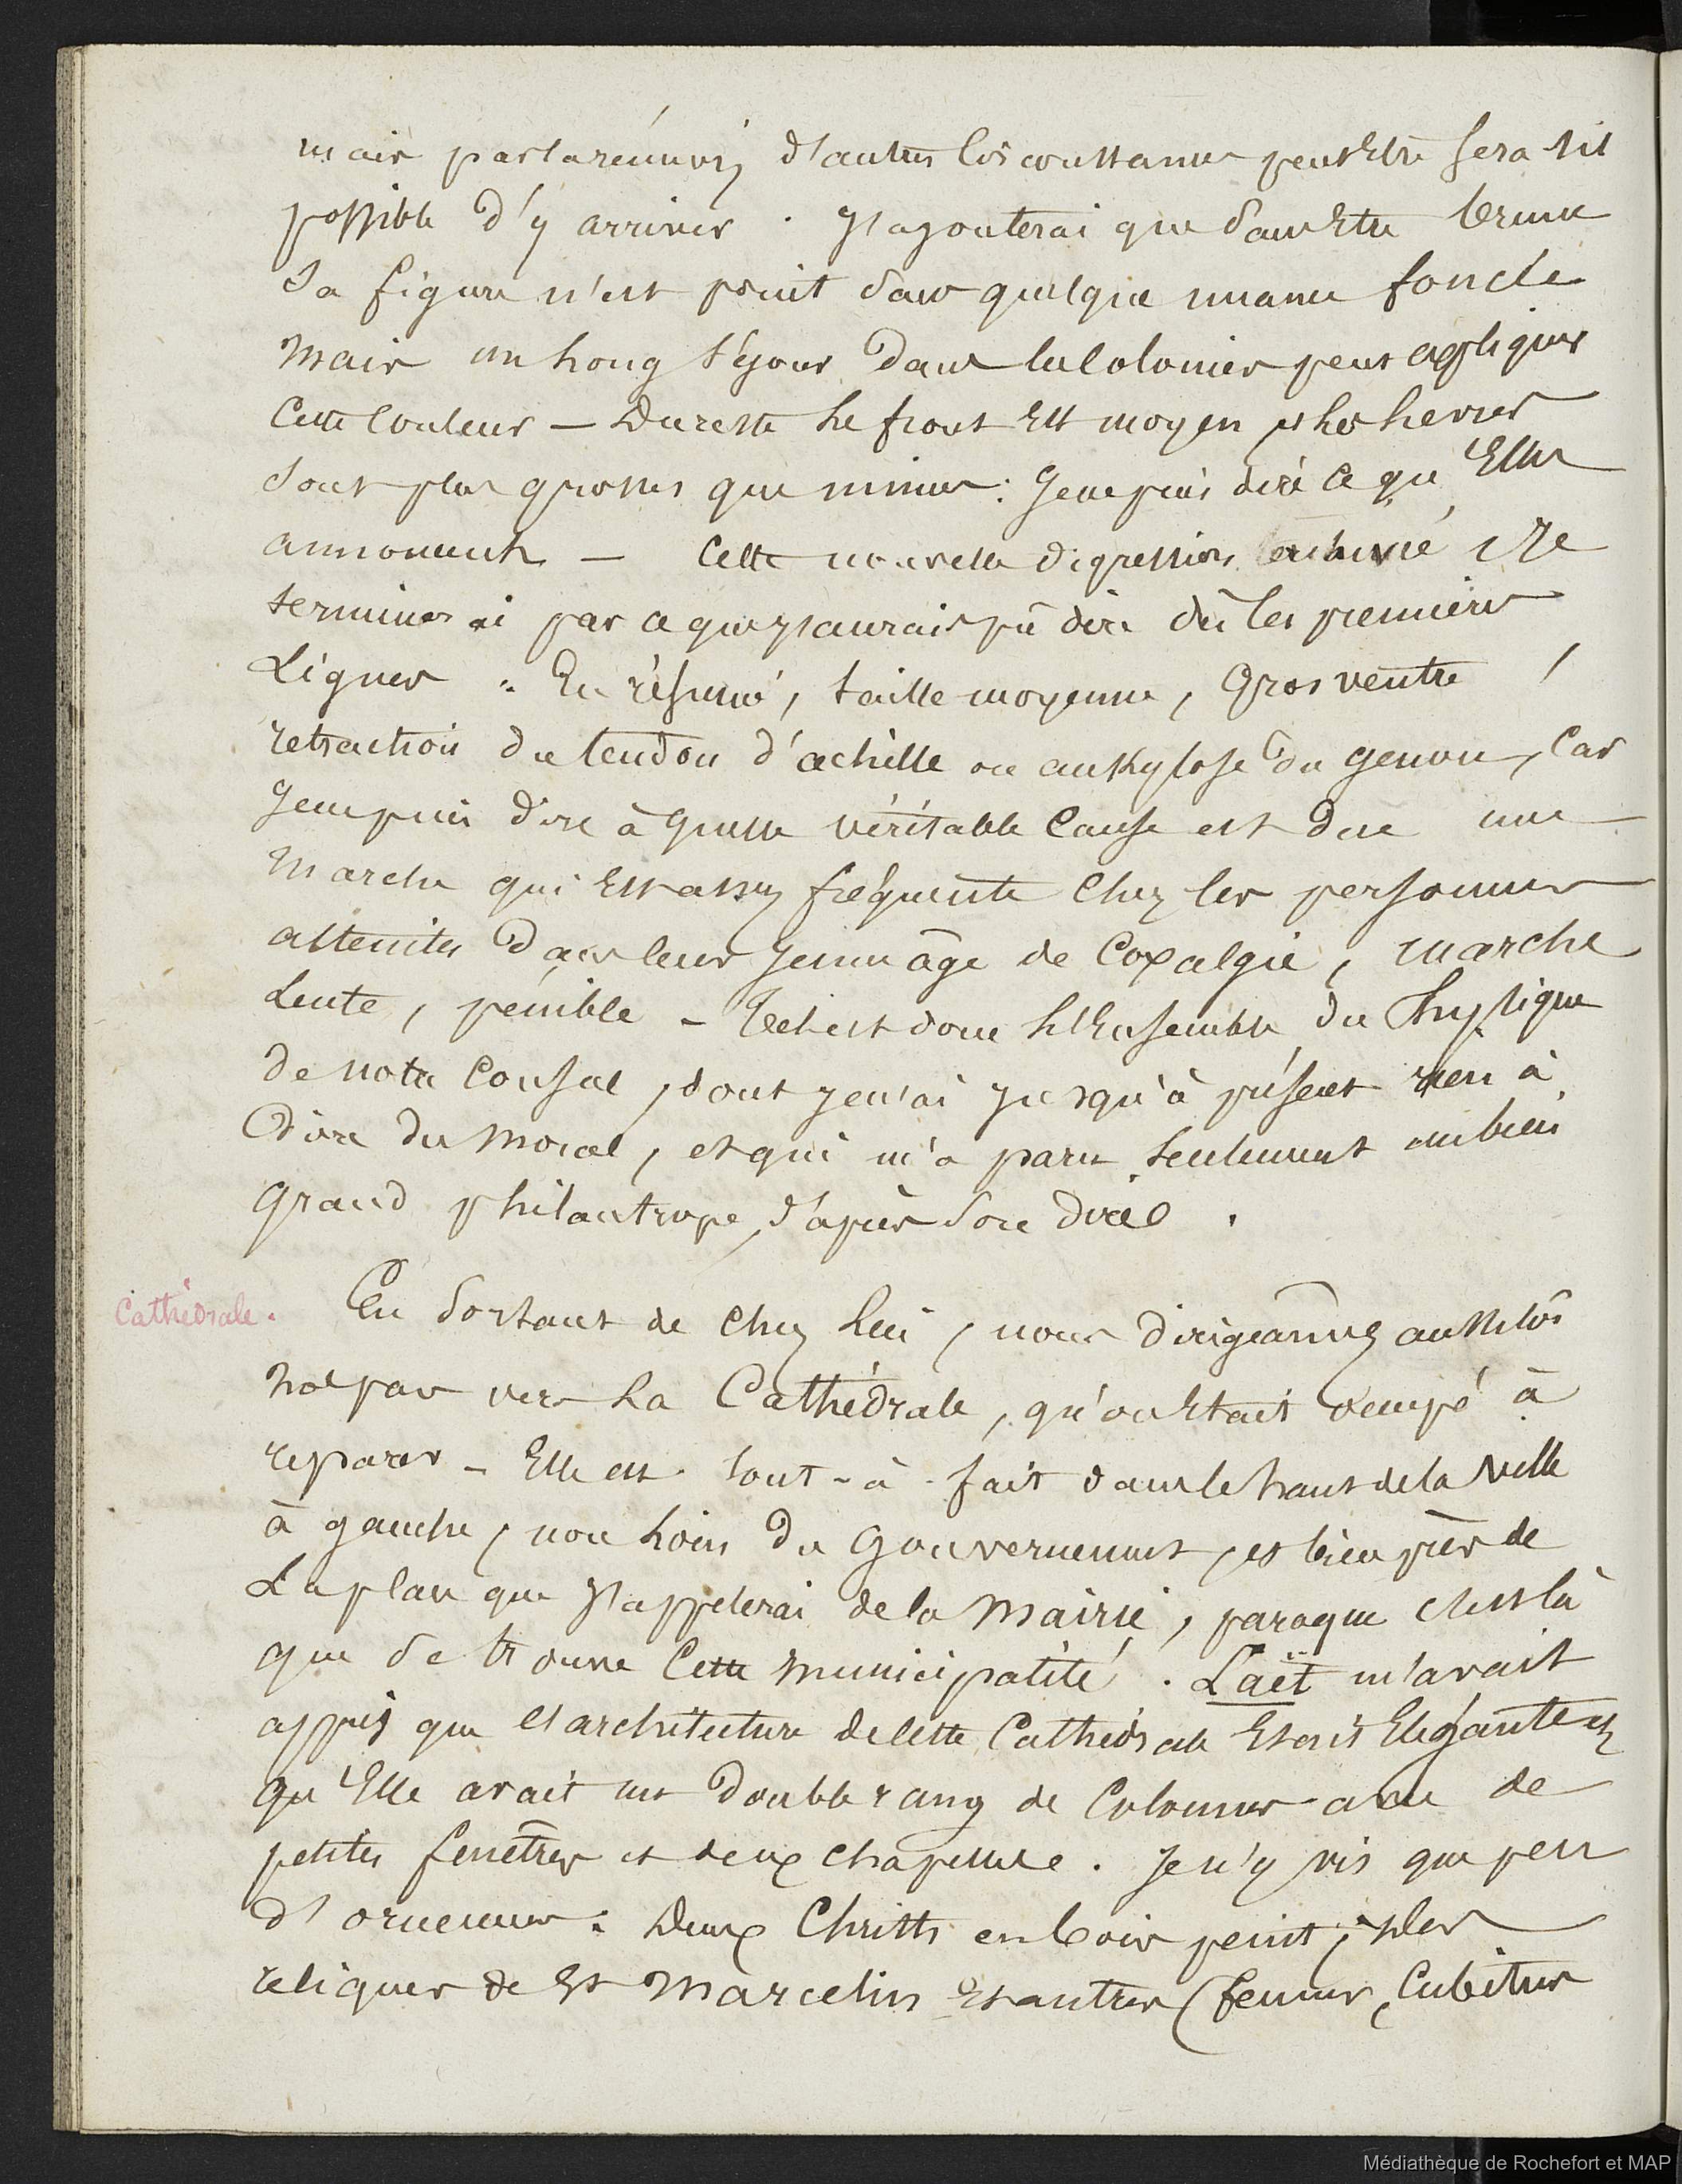 mais par la réunion d'autres circonstances peut Etre sera t'il
possible d'y arriver. J'ajouterai que sans Etre brune
sa figure n'est point sans quelque nuance foncée
Mais un long séjour dans les Colonies peut expliquer
Cette Couleur — Du reste le front Est moyen, et les levres
sont plus grosses que minces : Je ne puis dire ce qu'Elles
annoncent — Cette nouvelle digression achevée Je
terminerai par ce que j'aurais pû dire dès les premières
Lignes : En résumé, taille moyenne, Gros ventre,
retraction du tendon d'achille ou ankylose du genou, Car
Je ne puis dire à quelle véritable Cause est due une
Marche qui Est assez fréquente Chez les personnes
atteintes dans leur jeune âge de Coxalgie, marche
Lente, pénible — Tel est donc l'Ensemble du Physique
de notre Consul, dont je n'ai jusqu'à présent rien à
dire du Moral, et qui m'a paru seulement un bien
grand philantrope, d'après son dire.
Cathédrale. En sortant de Chez Lui, nous dirigeâmes aussitôt
nos pas vers La Cathédrale, qu'on Etait occupé à
reparer — Elle est tout-à-fait dans le haut de la ville
à gauche, non Loin du Gouvernement, et bien près de
La place que J'appelerai de la Mairie, parceque c'est là
que se trouve Cette Municipalité. Laët m'avait
appris que l'architecture de Cette Cathédrale Etait Elégante et
qu'Elle avait un double rang de Colonnes avec de
petites fenêtres et deux chapelles. Je n'y vis que peu
d'ornemens : Deux Christs en bois peint, et des
reliques de St Marcelin Et autres (femur, Cubitus
Médiathèque de Rochefort et MAP